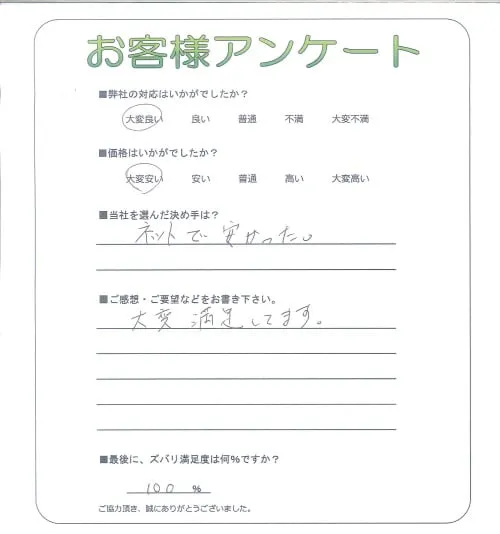 お客様アンケート
■弊社の対応はいかがでしたか？
大変良い 良い 普通 不満 大変不満
■価格はいかがでしたか？
大変安い 安い 普通 高い 大変高い
■当社を選んだ決め手は？
ネットで安かった。
■ご感想・ご要望などをお書き下さい。
大変満足してます。
■最後に、ズバリ満足度は何％ですか？
100 ％
ご協力頂き、誠にありがとうございました。